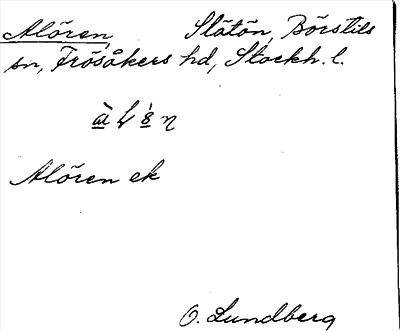 Alören, Slätön, Börstils
sn, Frösåkers hd, Stockh. l.
Alören ek
O. Lundberg